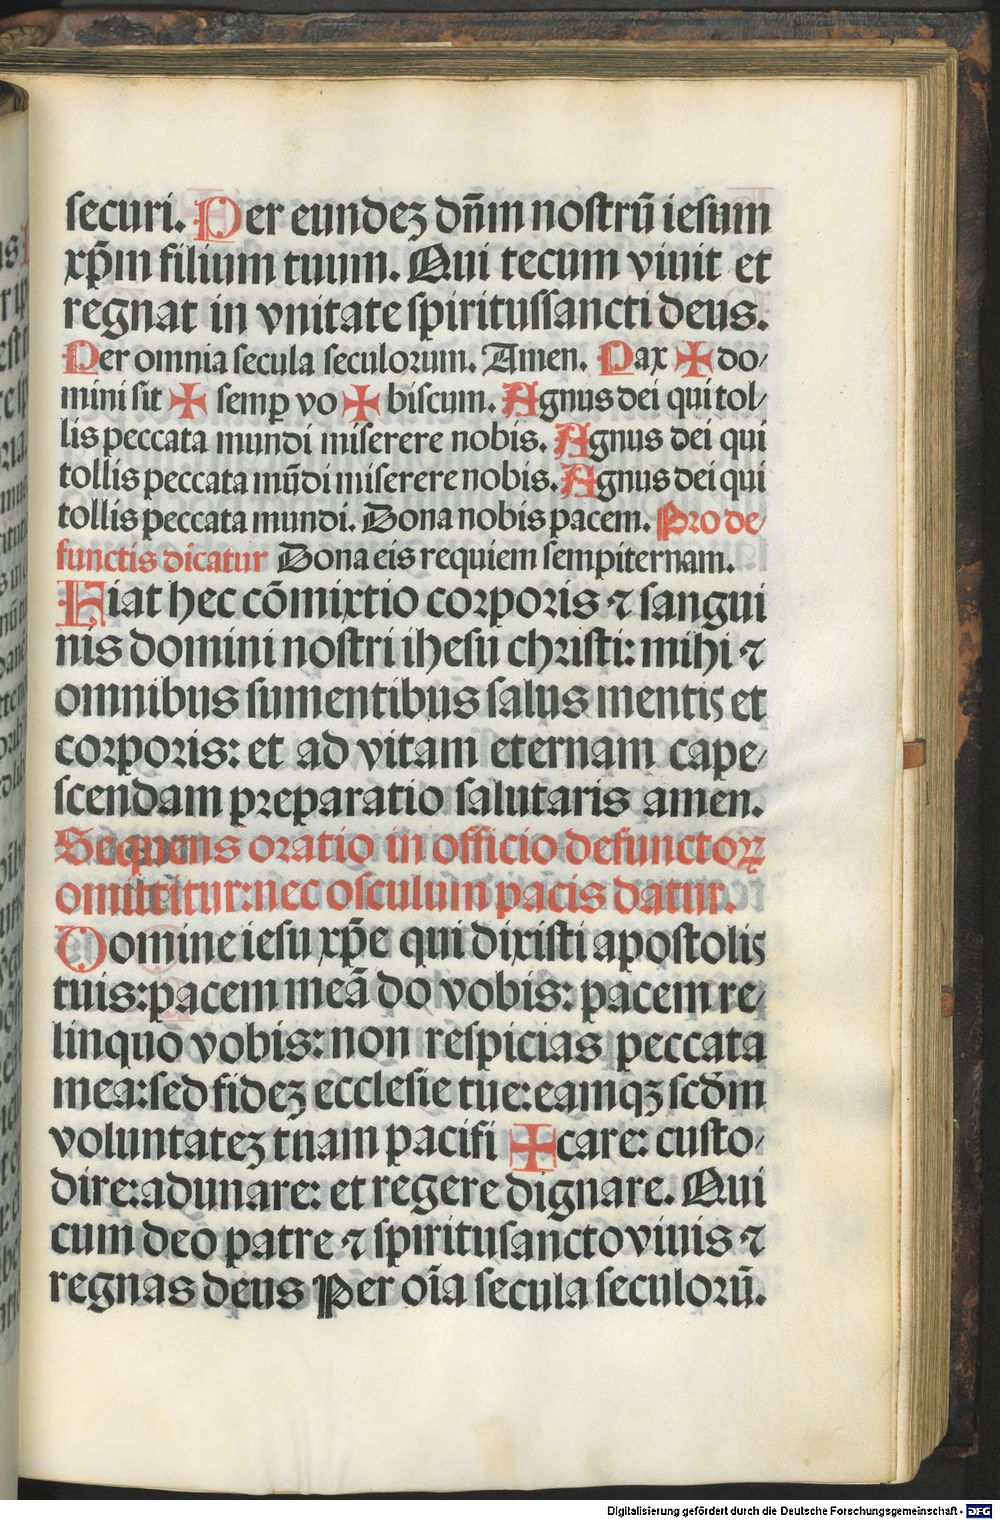 securi. Per eundeʒ dñm nostrū iesum
xp̄m filium tuum. Qui tecum viuit et
regnat in vnitate spiritussancti deus.
Per omnia secula seculorum. Amen. Pax ✠ do⸗
mini sit ✠ semꝑ vo ✠ biscum. Agnus dei qui tol⸗
lis peccata mundi miserere nobis. Agnus dei qui
tollis peccata mūdi miserere nobis. Agnus dei qui
tollis peccata mundi. Dona nobis pacem. Pro de⸗
functis dicatur Dona eis requiem sempiternam.
Fiat hec cōmixtio corporis ⁊ sangui
nis domini nostri ihesu christi: mihi ⁊
omnibus sumentibus salus mentis et
corporis: et ad vitam eternam cape⸗
scendam preparatio salutaris amen.
Sequens oratio in officio defunctoꝝ
omittitur: nec osculum pacis datur.
Domine iesu xp̄e qui dixisti apostolis
tuis: pacem meā do vobis: pacem re⸗
linquo vobis: non respicias peccata
mea: sed fideʒ ecclesie tue: eamqʒ scd̄m
voluntateʒ tuam pacifi ✠ care: custo⸗
dire: adunare: et regere dignare. Qui
cum deo patre ⁊ spiritusancto viuis ⁊
regnas deus Per oīa secula seculorū.
Digitalisierung gefördert durch die Deutsche Forschungsgemeinschaft - DFG